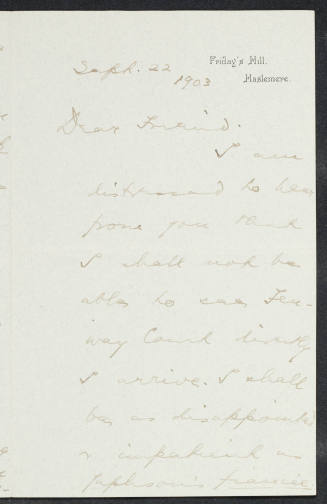 Friday's Hill.
Haslemere.
Sept. 22
1903
Dear Friend.
I am
distressed to hear
from you that
I shall not be
able to see Fen-
way Court directly
I arrive. I shall
be as disappointed
& impatient as
Japhson's fiancée